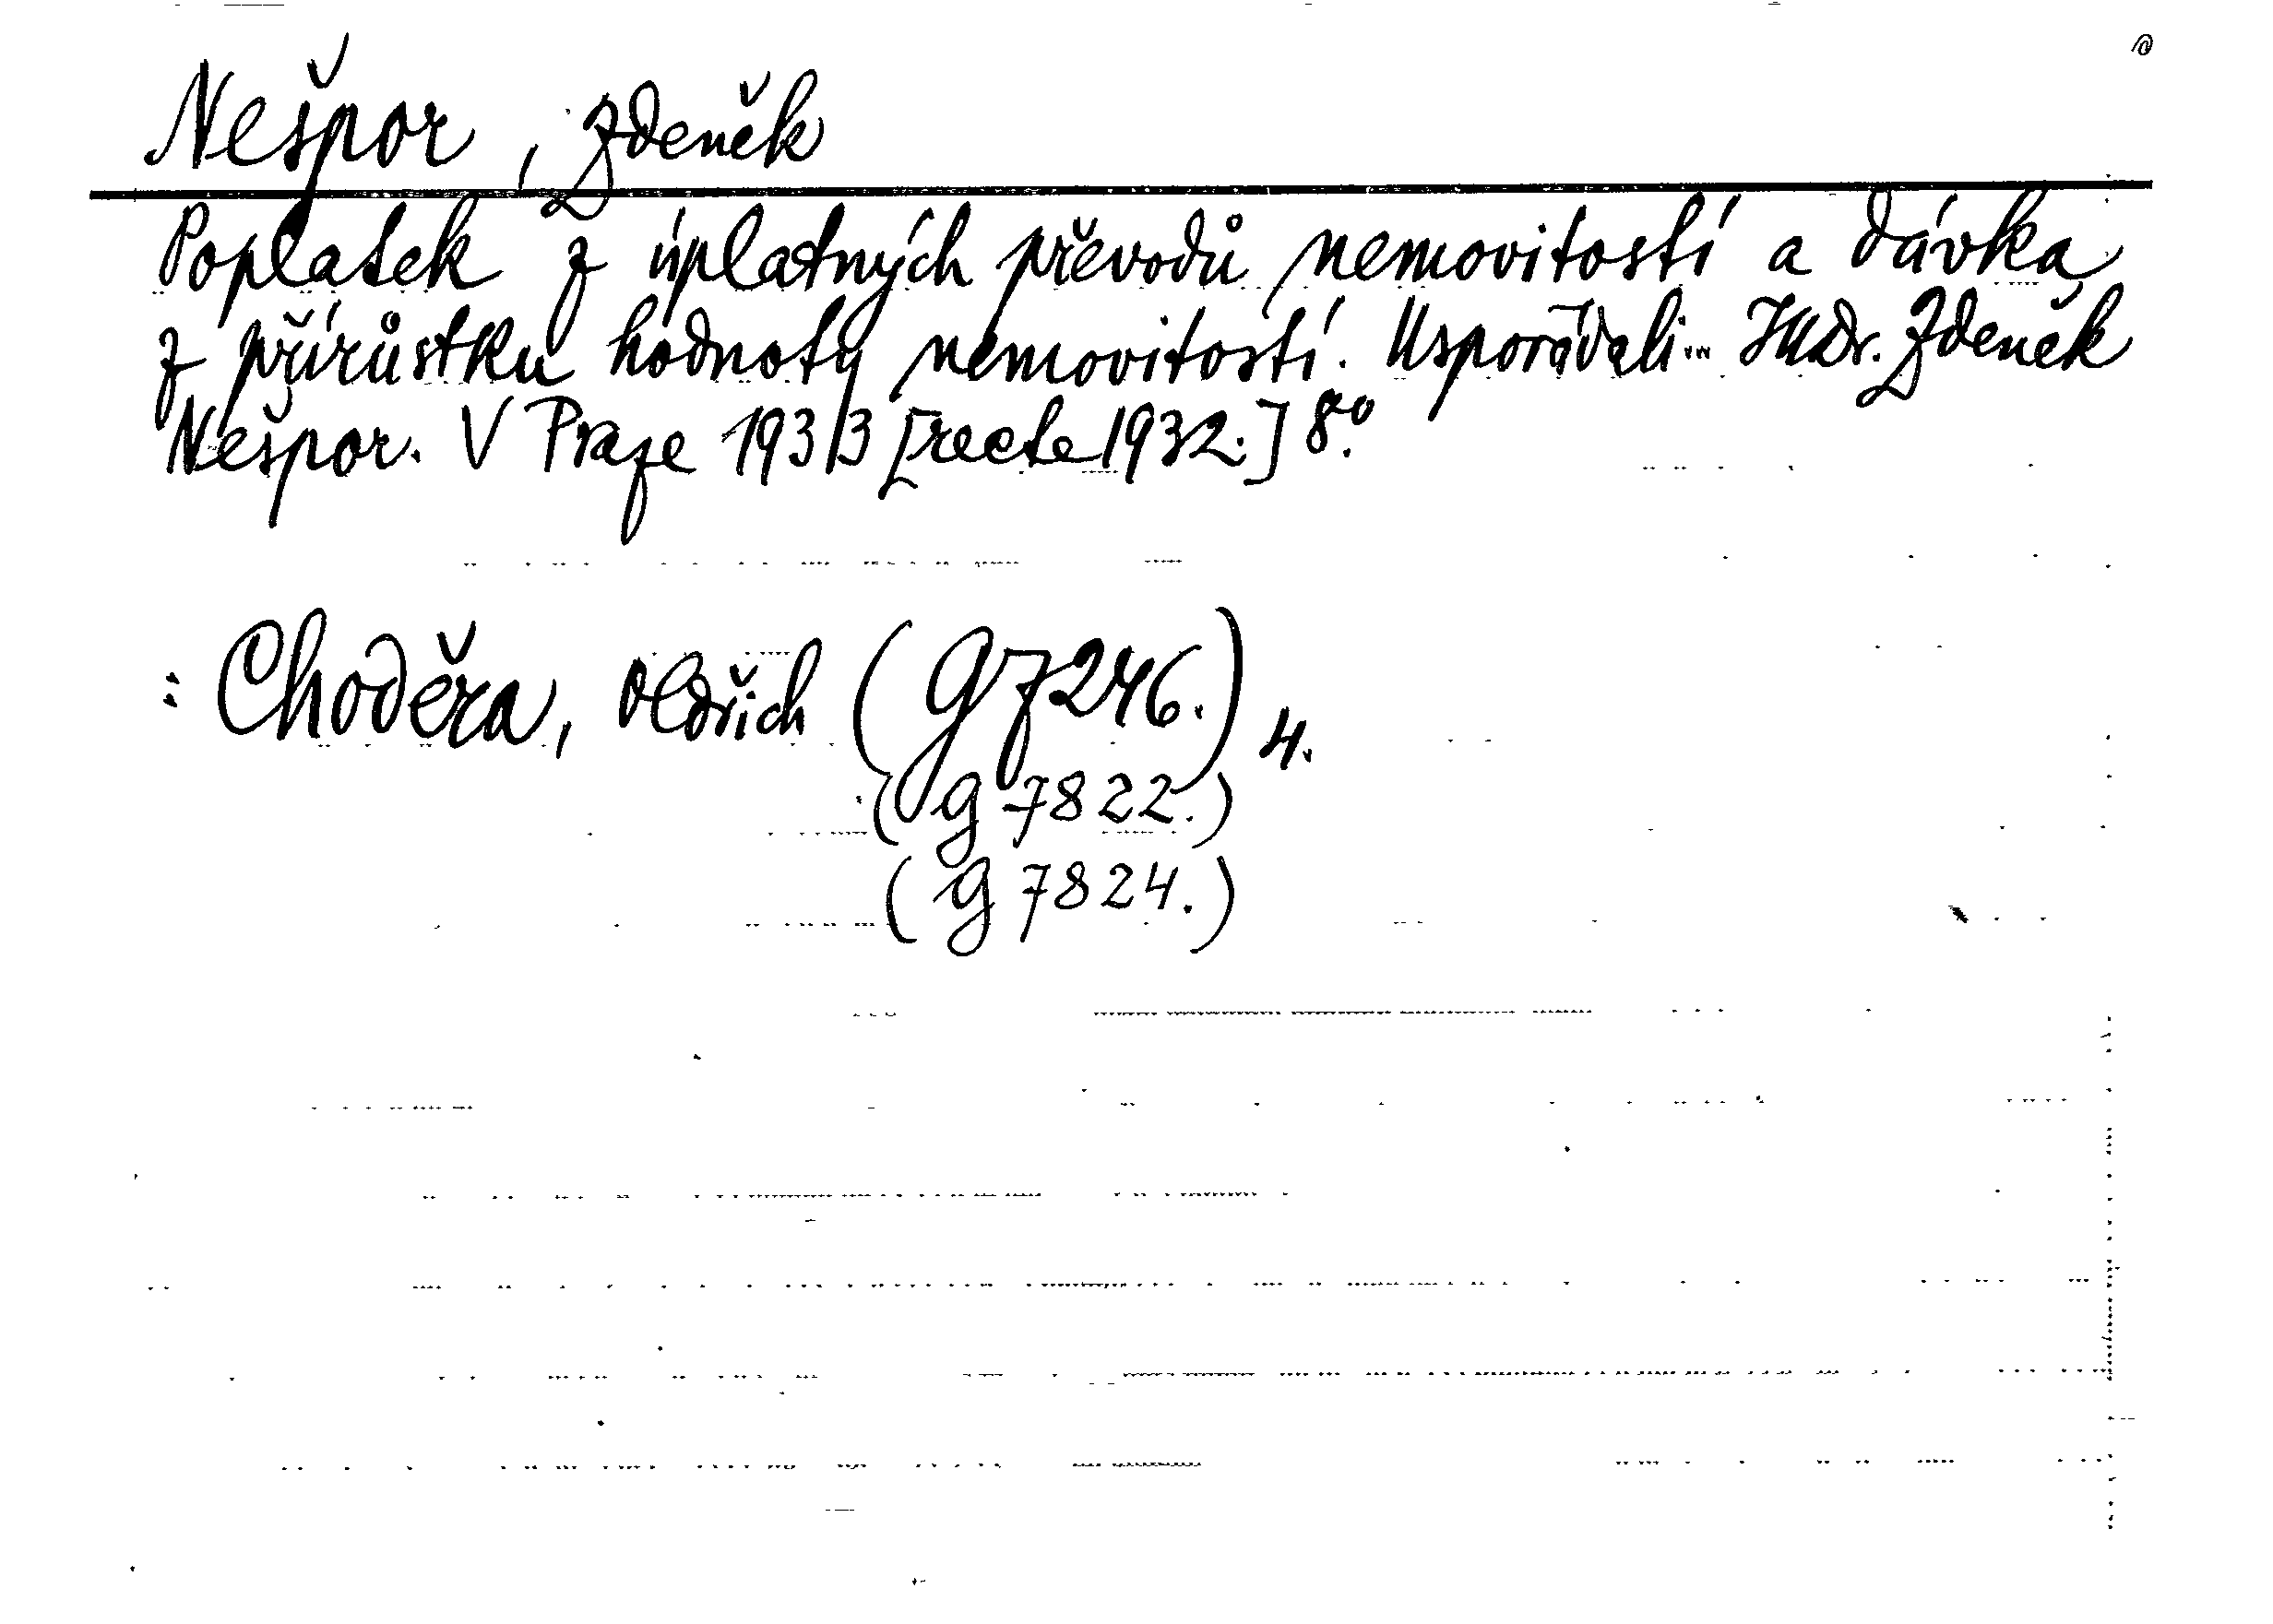 Nešpor, Zdeněk
Poplatek z úplatných převodů nemovitostí a dávka
z přírůstku hodnoty nemovitostí. Uspořádali... JUDr. Zdeněk
Nešpor. V Praze 1933 [recte 1932.] 8.°
: Choděra, Oldřich (g 7246.) 4.
(g 7822.)
(g 7824.)